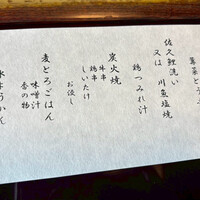 佐久鯉洗い
又は 川魚塩焼
鶏つみれ汁
炭火焼
牛串
鶏串
しいたけ
お浸し
麦とろごはん
味噌汁
香の物